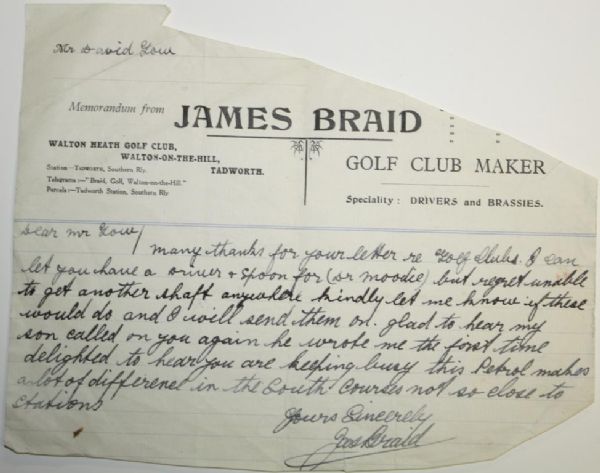 Mr David Gow
Memorandum from JAMES BRAID
WALTON HEATH GOLF CLUB,
WALTON-ON-THE-HILL,
TADWORTH.
Station—TADWORTH, Southern Rly.
Telegrams:—"Braid, Golf, Walton-on-the-Hill."
Parcels:—Tadworth Station, Southern Rly
GOLF CLUB MAKER
Speciality: DRIVERS and BRASSIES.
Dear Mr Gow/
Many thanks for your letter re Golf Clubs. I can
let you have a Driver + Spoon for (Dr Moodie) but regret unable
to get another shaft anywhere kindly let me know if these
would do and I will send them on. glad to hear my
son called on you again he wrote me the first time
delighted to hear you are keeping busy this Petrol makes
a lot of difference in the South Courses not so close to
Stations
Yours Sincerely
Jas Braid